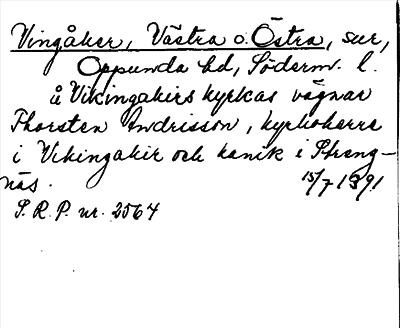 Vingåker, Västra o. Östra, sur,
Oppunda hd, Söderm. l.
å Vikingakirs kyrkas vägnar
Thorsten Andrisson, kyrkoherre
i Vikingakir och kanik i Streng-
näs. 15/7 1391
S.R.P. nr. 2564